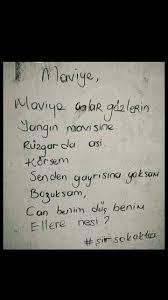 Maviye,
Maviye çalar gözlerin
Yangın mavisine
Rüzgarda asi
Körsem
Senden gayrısına yoksam
Bozuksam,
Can benim düş benim
Ellere nesi?
#şiirsokakta